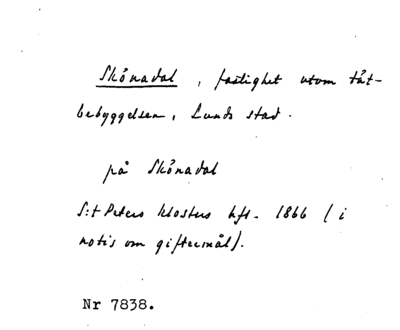 Skönadal, fastighet utom tät-
bebyggelsen, Lunds stad.
på Skönadal
S:t Peters klosters hfl. 1866 (i
notis om giftermål).
Nr 7838.